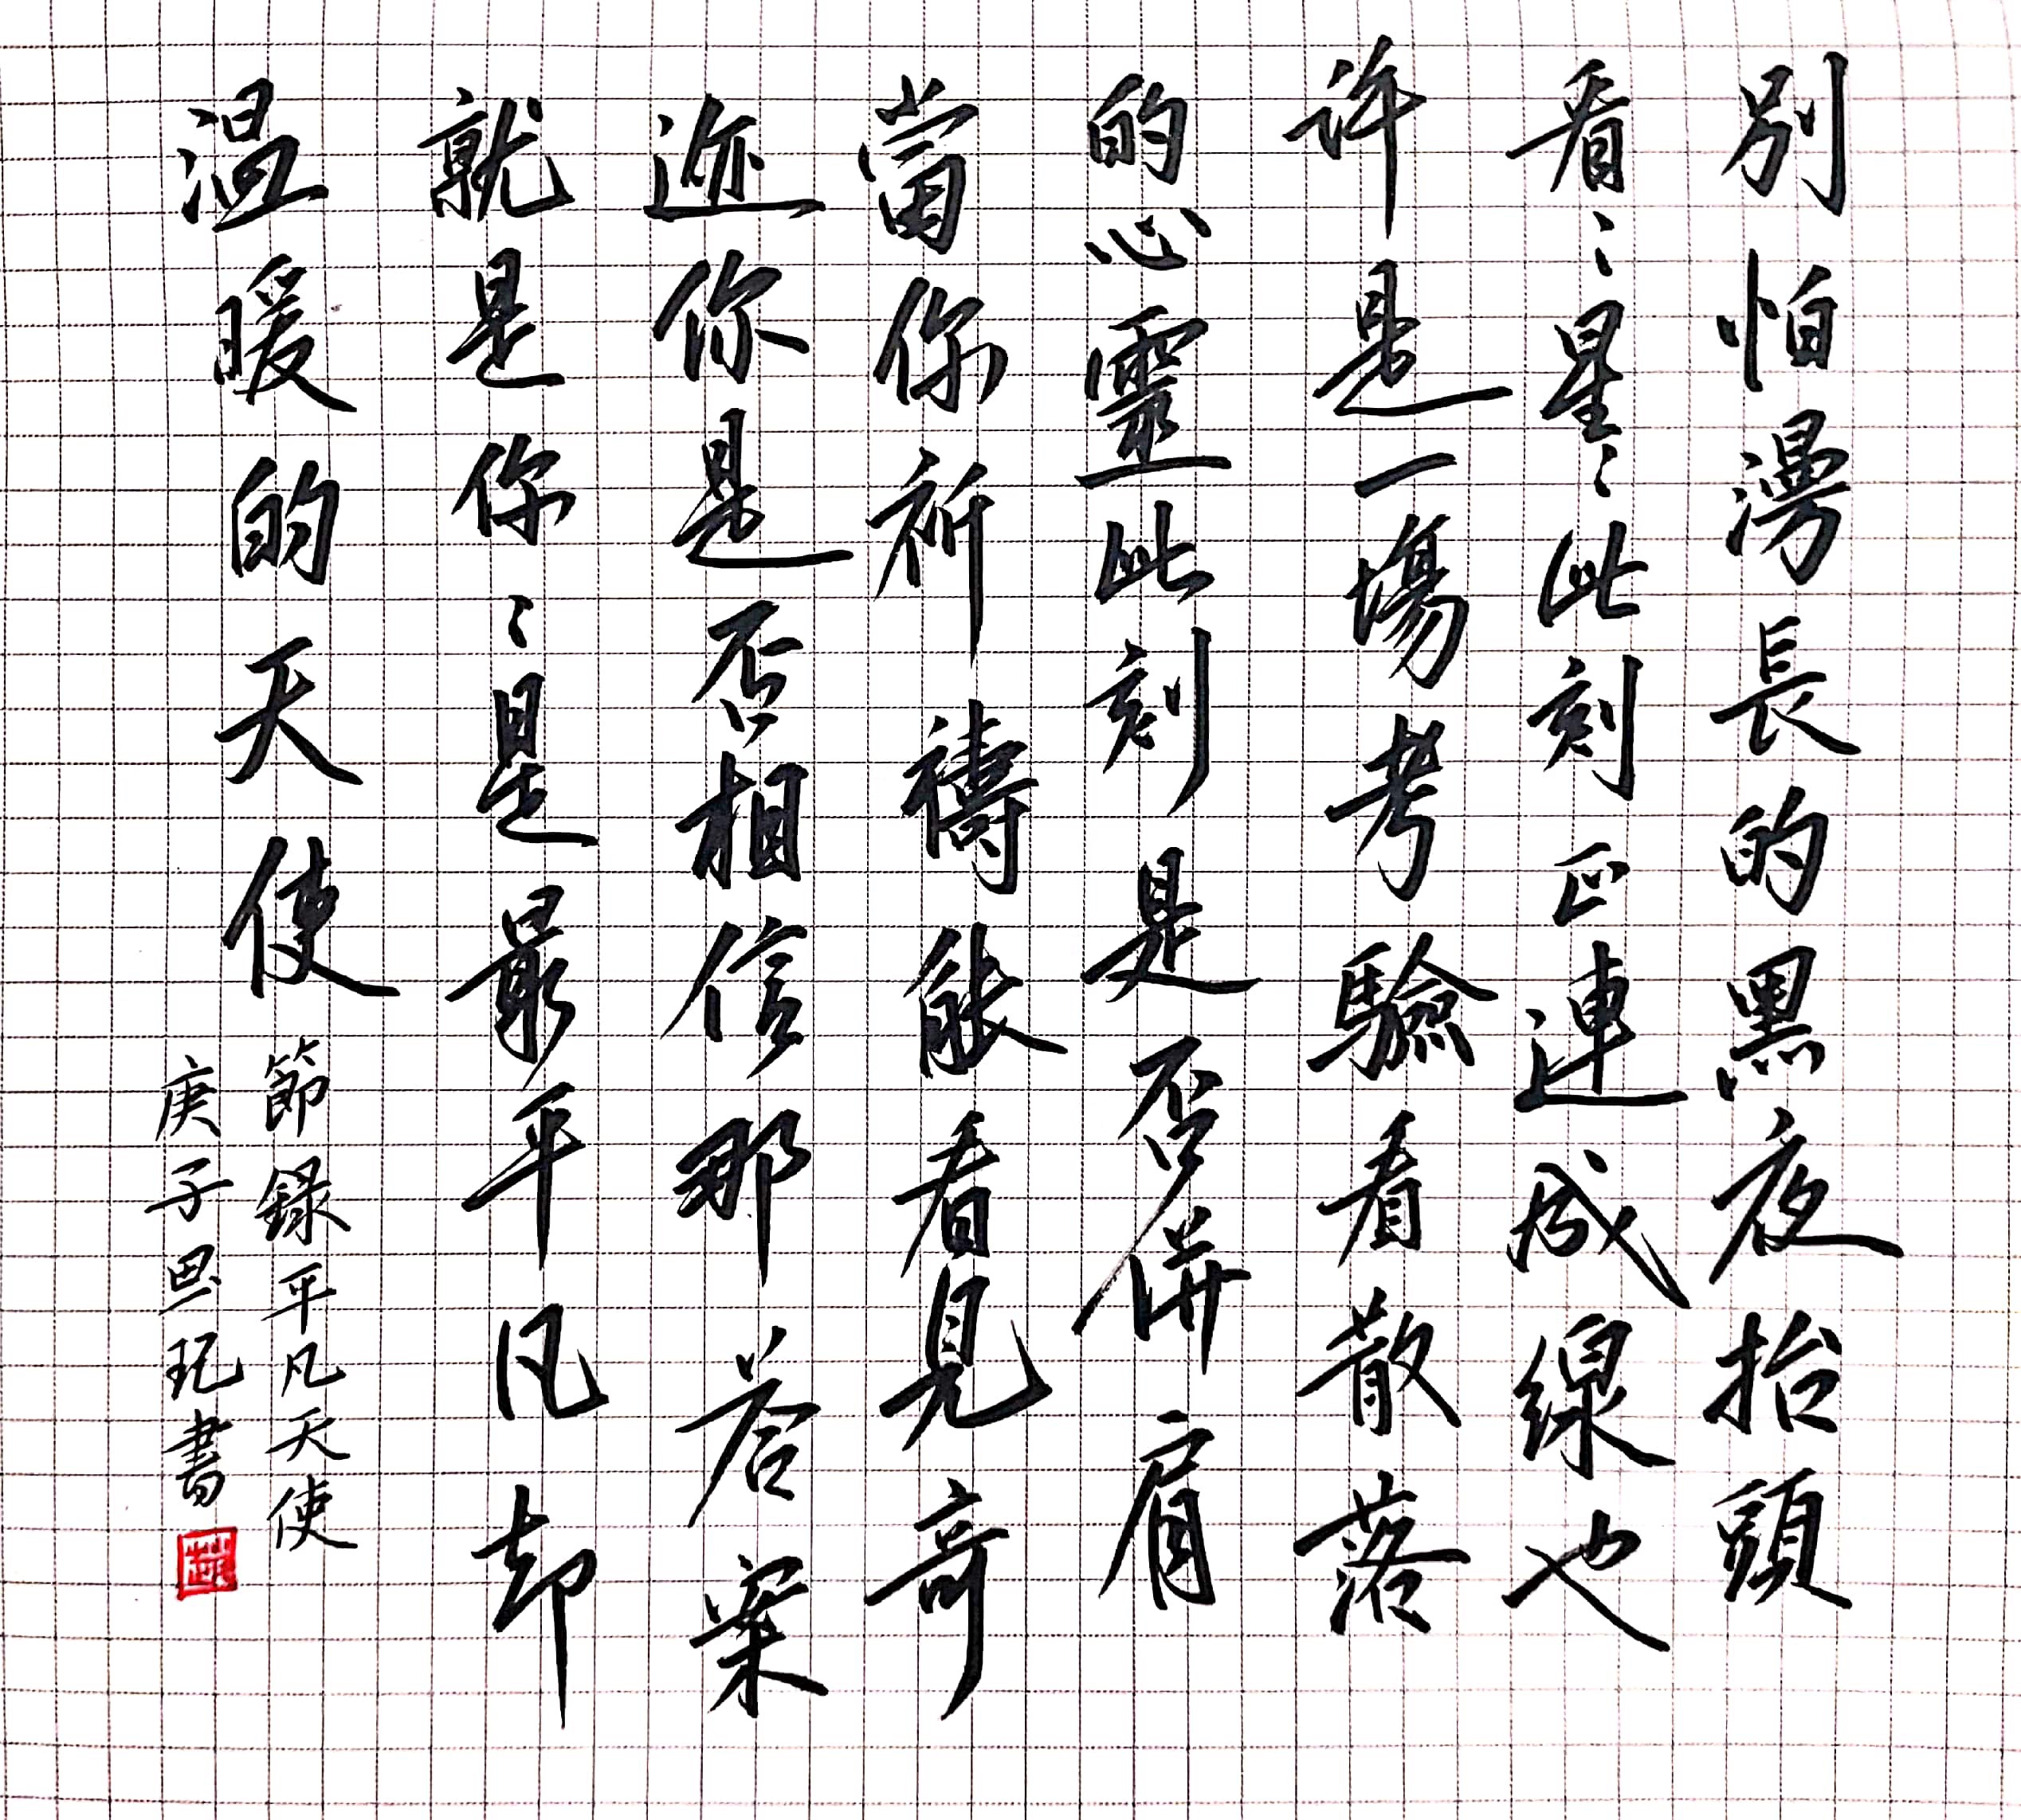 別怕漫長的黑夜抬頭
看〻星〻此刻正連成線也
許是一場考驗看散落
的心靈此刻是否併肩
當你祈禱能看見奇
迹你是否相信那答案
就是你〻是最平凡却
温暖的天使
節錄平凡天使
庚子 書